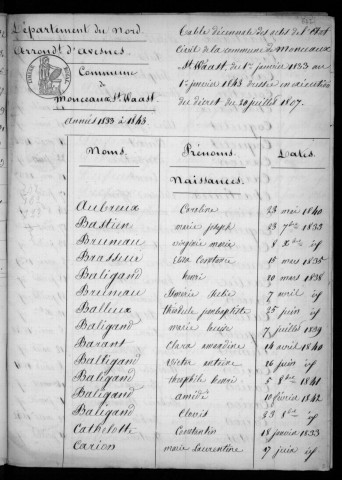 Département du Nord.
Arrond.t d'Avesnes
Commune
de
Monceaux St Waast.
Années 1833 à 1843.
Table décennale des actes de l'Etat
Civil de la commune de Monceaux
St Waast, du 1er janvier 1833 au
1er janvier 1843 dressée en exécution
du décret du 20 juillet 1807.
Noms. Prénoms. Dates.
Naissances.
Aubreux Caroline 23 mai 1840
Bastien marie joseph 23 7bre 1833
Bruneau virginie marie 8 Xbre if
Brasseur Elisa Constance 15 mars 1835
Baligand henri 20 mars 1838
Bruneau 7 avril if
Balleux jeanbaptiste 25 juin if
Baligand marie 7 juillet 1839
Barant Clara amandine 14 avril 1840
Baligand Victor antoine 26 juin if
Baligand théophile henri 5 8bre 1841
Baligand amédé 10 février 1842
Baligand Clovis 23 if
Cathelotte Constantin 18 janvier 1833
Carion marie Laurentine 7 juin if